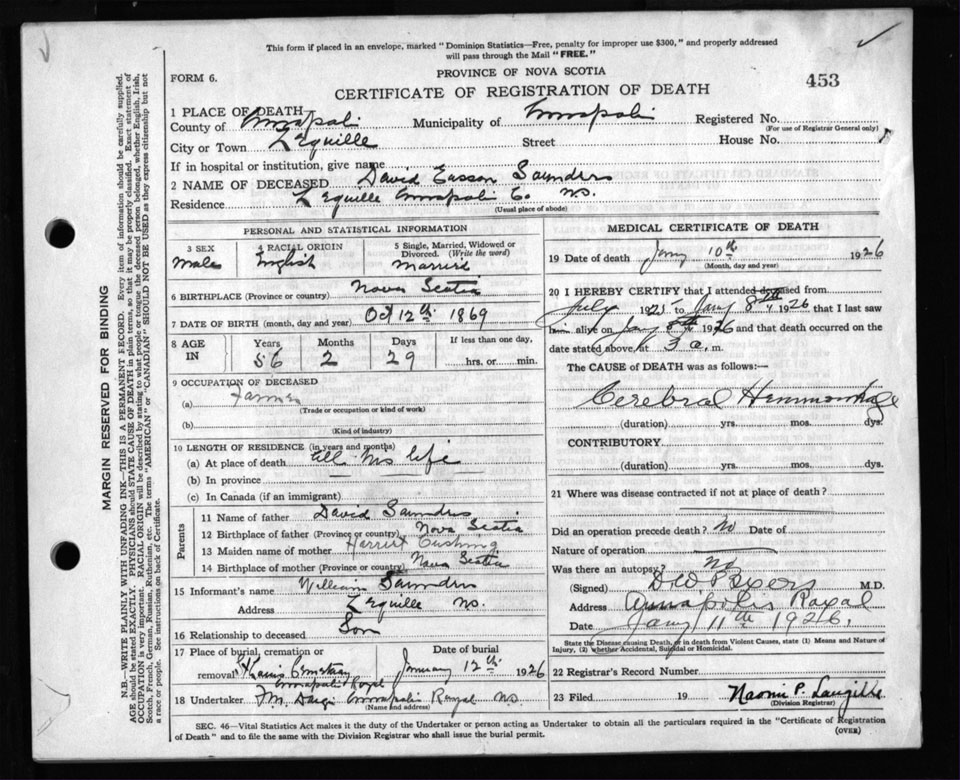 This form if placed in an envelope, marked "Dominion Statistics—Free, penalty for improper use $300," and properly addressed
will pass through the Mail "FREE."
FORM 6.
PROVINCE OF NOVA SCOTIA
453
CERTIFICATE OF REGISTRATION OF DEATH
1 PLACE OF DEATH—
County of Annapolis Municipality of Annapolis Registered No.
(For use of Registrar General only)
City or Town L'Equille Street House No.
If in hospital or institution, give name
2 NAME OF DECEASED David Easson Saunders
Residence L'Equille Annapolis Co. N.S.
(Usual place of abode)
PERSONAL AND STATISTICAL INFORMATION
3 SEX 4 RACIAL ORIGIN 5 Single, Married, Widowed or
Divorced. (Write the word)
Male English Married
6 BIRTHPLACE (Province or country) Nova Scotia
7 DATE OF BIRTH (month, day and year) Oct 12th 1869
8 AGE IN Years Months Days If less than one day,
56 2 29 hrs. or min.
9 OCCUPATION OF DECEASED
(a) Farmer
(Trade or occupation or kind of work)
(b)
(Kind of industry)
10 LENGTH OF RESIDENCE (in years and months)
(a) At place of death all his life
(b) In province
(c) In Canada (if an immigrant)
Parents
11 Name of father David Saunders
12 Birthplace of father (Province or country) Nova Scotia
13 Maiden name of mother Harriet Cushing
14 Birthplace of mother (Province or country) Nova Scotia
15 Informant's name William Saunders
Address L'Equille N.S.
16 Relationship to deceased Son
17 Place of burial, cremation or Date of burial
removal Cemetery January 12th 1926
Annapolis Royal
18 Undertaker F.M. Annapolis Royal N.S.
(Name and address)
MEDICAL CERTIFICATE OF DEATH
19 Date of death Jany 10th 1926
(Month, day and year)
20 I HEREBY CERTIFY that I attended deceased from
July 1925 to Jany 8th 1926 that I last saw
him alive on Jany 8th 1926 and that death occurred on
date stated above, at 3 a. m.
The CAUSE of DEATH was as follows:—
Cerebral Hemmorrhage
(duration) yrs. mos. dys.
CONTRIBUTORY
(duration) yrs. mos. dys.
21 Where was disease contracted if not at place of death?
Did an operation precede death? No Date of
Nature of operation
Was there an autopsy? No
(Signed) M.D.
Address Annapolis Royal
Date Jany 11th 1926.
State the Disease causing Death, or in death from Violent Causes, state (1) Means and Nature of
Injury, (2) whether Accidental, Suicidal or Homicidal.
22 Registrar's Record Number
23 Filed 19 Naomi P. Langille
(Division Registrar)
SEC. 46—Vital Statistics Act makes it the duty of the Undertaker or person acting as Undertaker to obtain all the particulars required in the "Certificate of Registration
of Death" and to file the same with the Division Registrar who shall issue the burial permit.
(OVER)
MARGIN RESERVED FOR BINDING
N.B.—WRITE PLAINLY WITH UNFADING INK—THIS IS A PERMANENT RECORD. Every item of information should be carefully supplied.
AGE should be stated EXACTLY. PHYSICIANS should STATE CAUSE OF DEATH in plain terms, so that it may be properly classified. Exact statement of
OCCUPATION is very important. RACIAL ORIGIN will be described by stating to what people or tongue the deceased person belonged, whether English, Irish,
Scotch, French, German, Russian, Ruthenian, etc. The terms "AMERICAN" or "CANADIAN" SHOULD NOT BE USED as they express citizenship but not
a race or people. See instructions on back of Certificate.